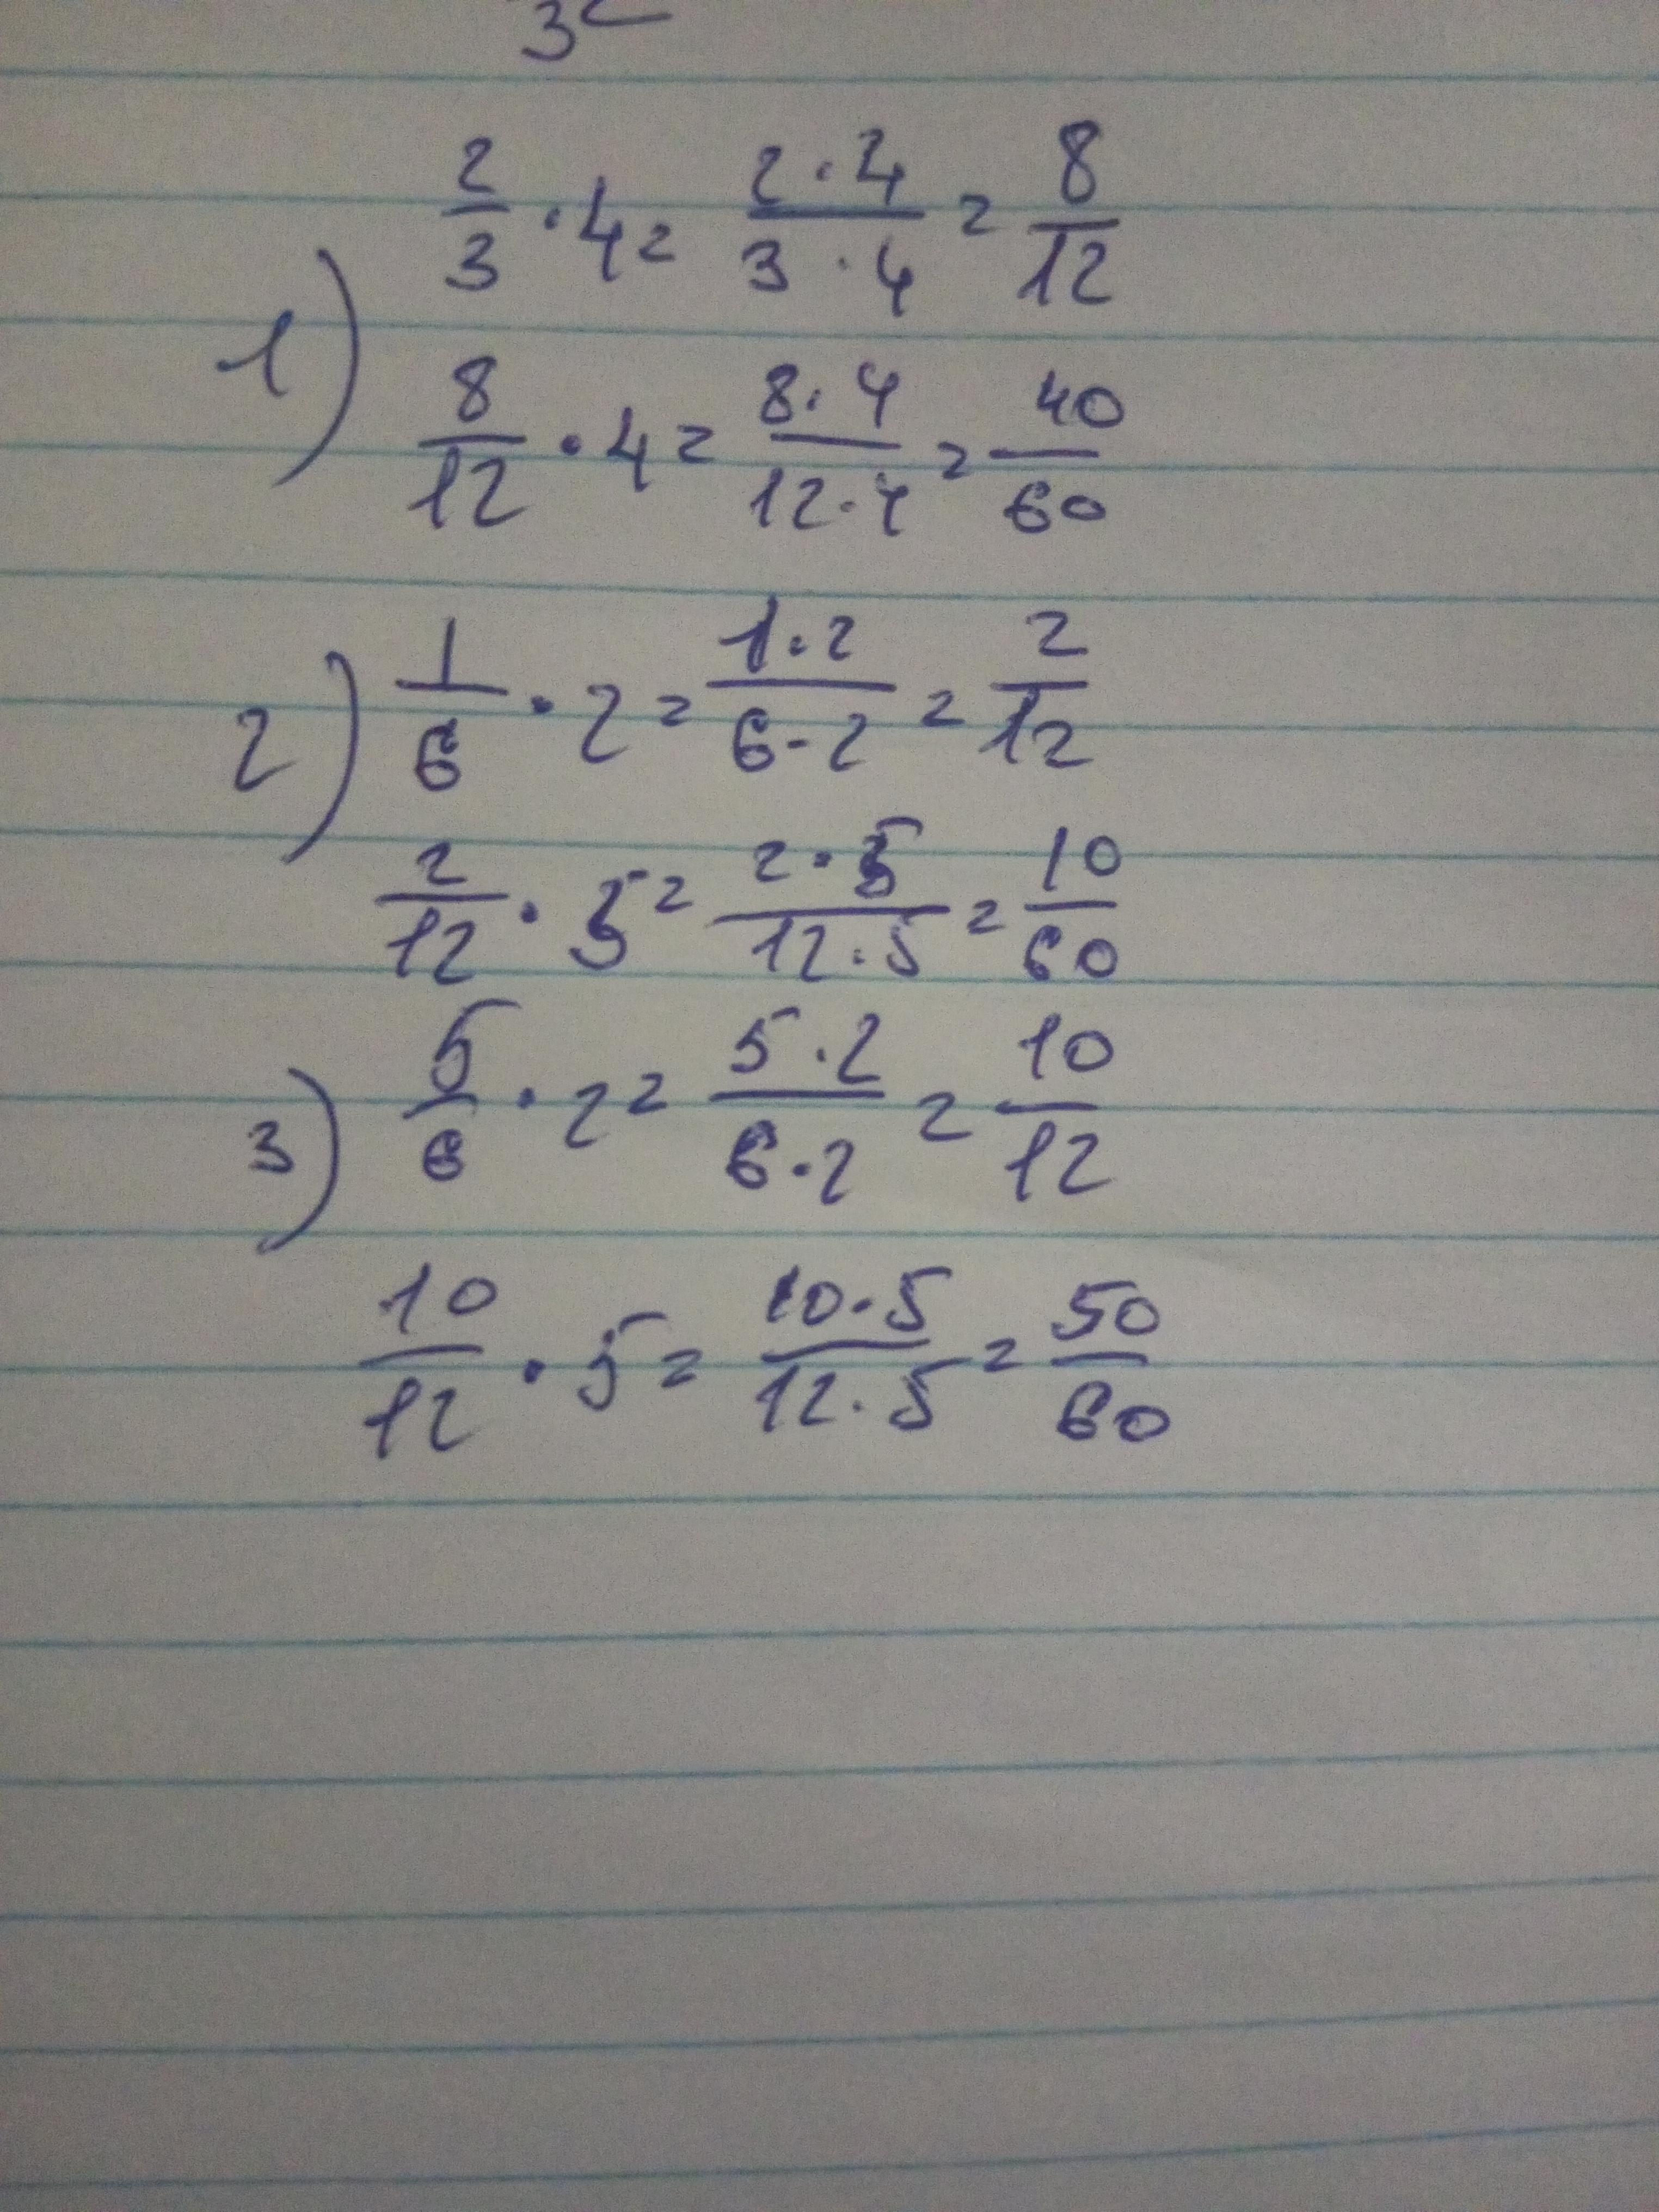 3
2/3 · 4 = 2 · 4/3 · 4 = 8/12
1)
8/12 · 4 = 8 · 4/12 · 4 = 40/60
2) 1/6 · 2 = 1 · 2/6 · 2 = 2/12
2/12 · 5 = 2 · 5/12 · 5 = 10/60
3) 5/6 · 2 = 5 · 2/6 · 2 = 10/12
10/12 · 5 = 10 · 5/12 · 5 = 50/60